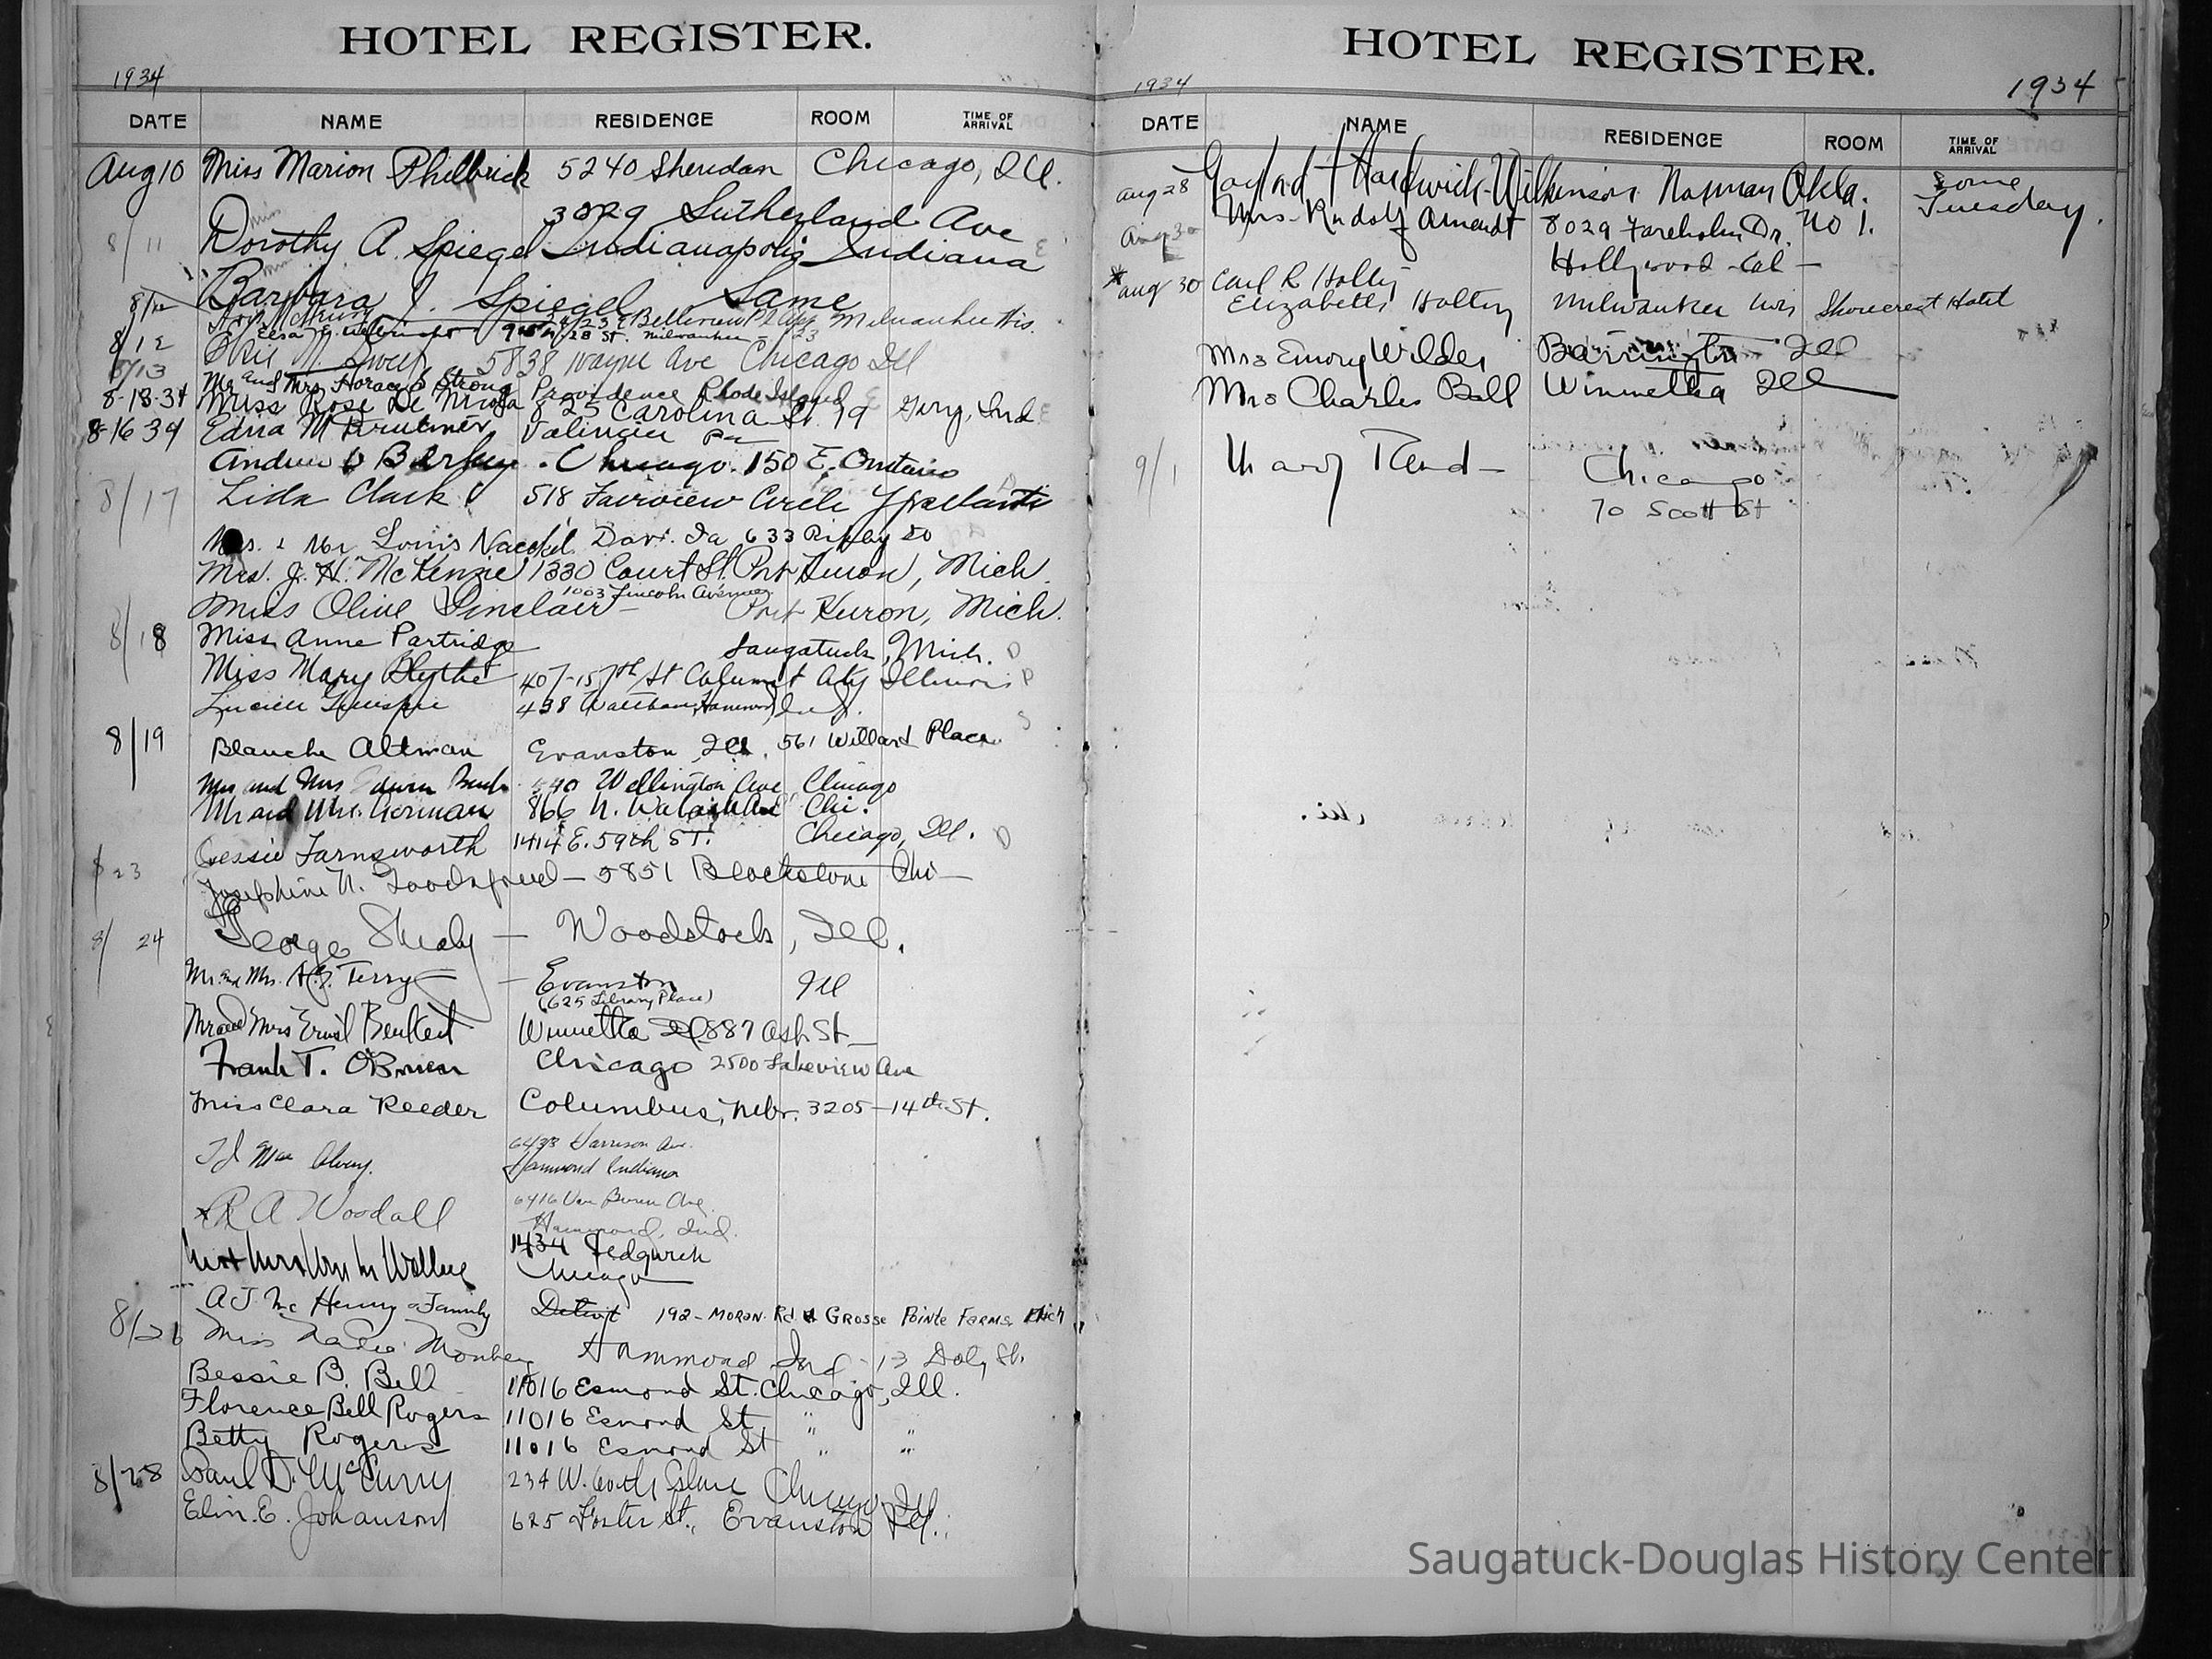 HOTEL REGISTER.
1934
DATE NAME RESIDENCE ROOM TIME OF ARRIVAL
Aug 10 Miss Marion Philbrick 5240 Sheridan Chicago, Ill.
3029 Sutherland Ave
8/11 Miss Dorothy A. Spiegel Indianapolis Indiana
Barbara J. Spiegel Same
8/12 Milwaukee Wis.
Elsa St. Milwaukee
8/12 Sweet 5838 Wayne Ave Chicago Ill
8/13 Mr and Mrs Horace S Strong Providence Rhode Island
8-13-34 Miss Rose De 825 Carolina St. Gary, Ind
8-16 34 Edna M Pa
Andrew Chicago. 150 E. Ontario
8/17 Lida Clark 518 Fairview Circle Ypsilanti
Mrs. & Mr Louis Naeckel Dav. Ia 633 Ripley St
Mrs. J. H. McKenzie 1330 Court St. Port Huron, Mich.
1003 Lincoln Avenue
Miss Olive Sinclair - Port Huron, Mich.
8/18 Miss Anne Partridge Saugatuck, Mich.
Miss Mary Blythe 407-157th St Calumet City Illinois
438 Hammond Ind.
8/19 Blanche Altman Evanston, Ill. 561 Willard Place
Mr and Mrs Edwin 540 Wellington Ave, Chicago
Mr and Mrs. Gorman 866 N. Wabash Ave Chi.
Jessie Farnsworth 1414 E. 59th ST. Chicago, Ill.
8 23 Josephine N. - 5851 Blackstone Chi -
8/24 George Shealy - Woodstock, Ill.
Mr. and Mrs. A.J. Terry - Evanston Ill
(625 Library Place)
Mr and Mrs Ernst Winnetka Ill 887 Ash St -
Frank T. O'Brien Chicago 2500 Lakeview Ave
Miss Clara Reeder Columbus, Nebr. 3205-14th St.
6433 Harrison Ave.
Hammond Indiana
R A Woodall 6416 Van Buren Ave
Hammond, Ind.
1434 Sedgwick
Chicago
A J McHenry & Family Detroit 192 - MORAN Rd GROSSE POINTE FARMS Mich
8/26 Miss Hammond Ind
Bessie B. Bell 11016 Esmond St. Chicago, Ill.
Florence Bell Rogers 11016 Esmond St " "
Betty Rogers 11016 Esmond St " "
8/28 Paul D. McCurry 234 W. Chicago Ill
Elin. E. Johanson 625 Foster St., Evanston Ill.
HOTEL REGISTER.
1934 1934
DATE NAME RESIDENCE ROOM TIME OF ARRIVAL
Aug 28 Gaylord Hardwick-Wilkinson Norman Okla. Some Tuesday.
Aug 30 Mrs. Rudolf Amendt 8029 Fareholm Dr. No 1.
Hollywood Cal -
* Aug 30 Carl R Holty
Elizabeth Holty Milwaukee Wis Shorecrest Hotel
Mrs Emory Wilder Barrington Ill
Mrs Charles Ball Winnetka Ill
9/1 Mary Rend - Chicago
70 Scott St
Saugatuck-Douglas History Center